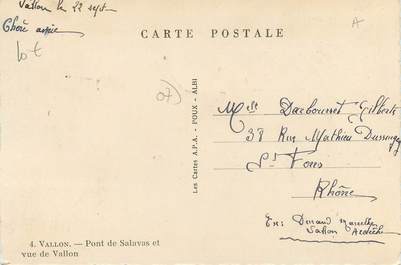 Vallon le 22 sept
Chère amie
lot
A
CARTE POSTALE
07)
Les Cartes A.P.A. - POUX - ALBI
Melle Darbonnet Gilberte
38 Rue Mathieu Dussurgey
St Fons
Rhône
Ex: Durand Marcelle
Vallon Ardèche
4. VALLON. — Pont de Salavas et
vue de Vallon